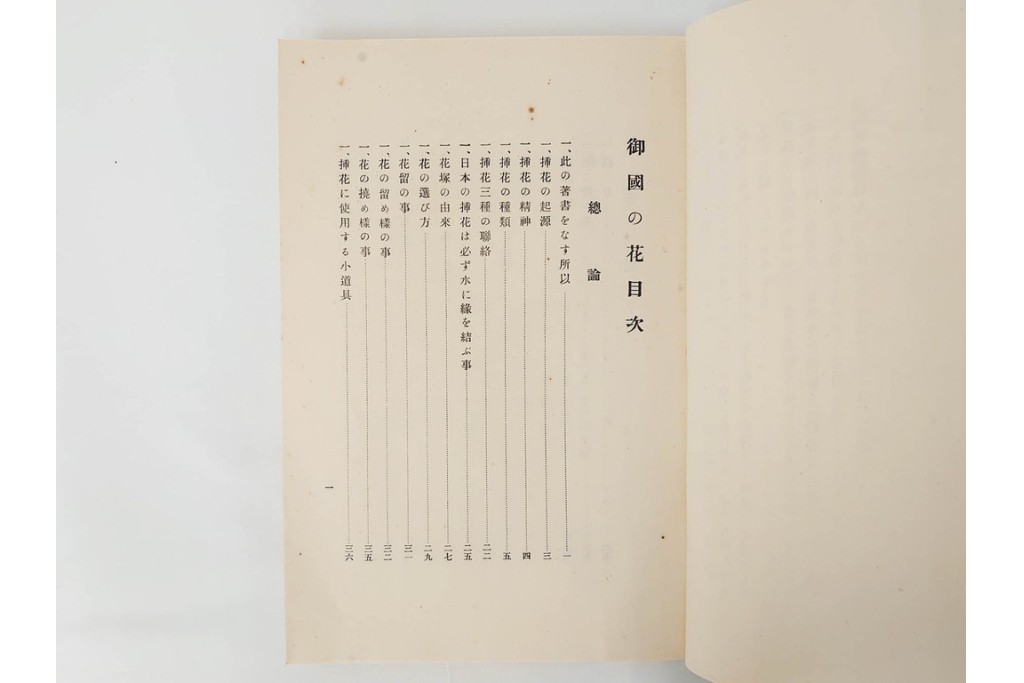 御國の花目次
總論
一、此の著書をなす所以…………一
一、揷花の起源…………三
一、揷花の精神…………四
一、揷花の種類…………五
一、揷花三種の聯絡…………二二
一、日本の揷花は必ず水に緣を結ぶ事…………二五
一、花塚の由來…………二七
一、花の選び方…………二九
一、花留の事…………三一
一、花の留め樣の事…………三二
一、花の撓め樣の事…………三五
一、揷花に使用する小道具…………三六
一